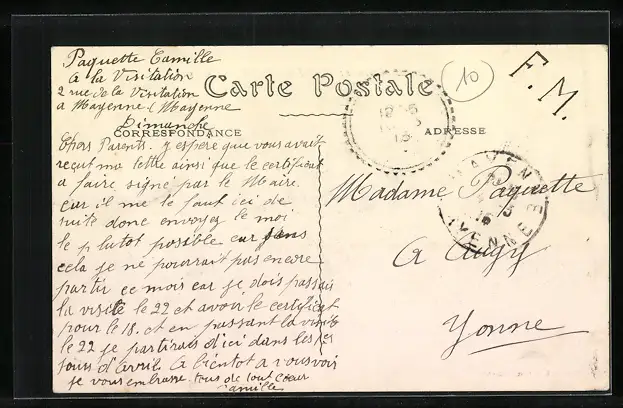 Paquette Camille
a la Visitation
2 rue de la Visitation
a Mayenne (Mayenne
Carte Postale
10
F. M.
Dimanche
CORRESPONDANCE
ADRESSE
Chers Parents. J'espère que vous avait
reçut ma lettre ainsi que le certificat
a faire signé par le Maire.
car il me le faut ici de
suite donc envoyez le moi
le plutot posible car sans
cela je ne pourrait pas encore
partir ce mois car je dois passais
la visite le 22 et avoir le certificat
pour le 18. et en passant la visite
le 22 je partirais d'ici dans les 1es
jours d'avril. A bientot a vous voir
je vous embrasse tous de tout cœur
Camille
Madame Paquette
A Augy
Yonne
MAYENNE